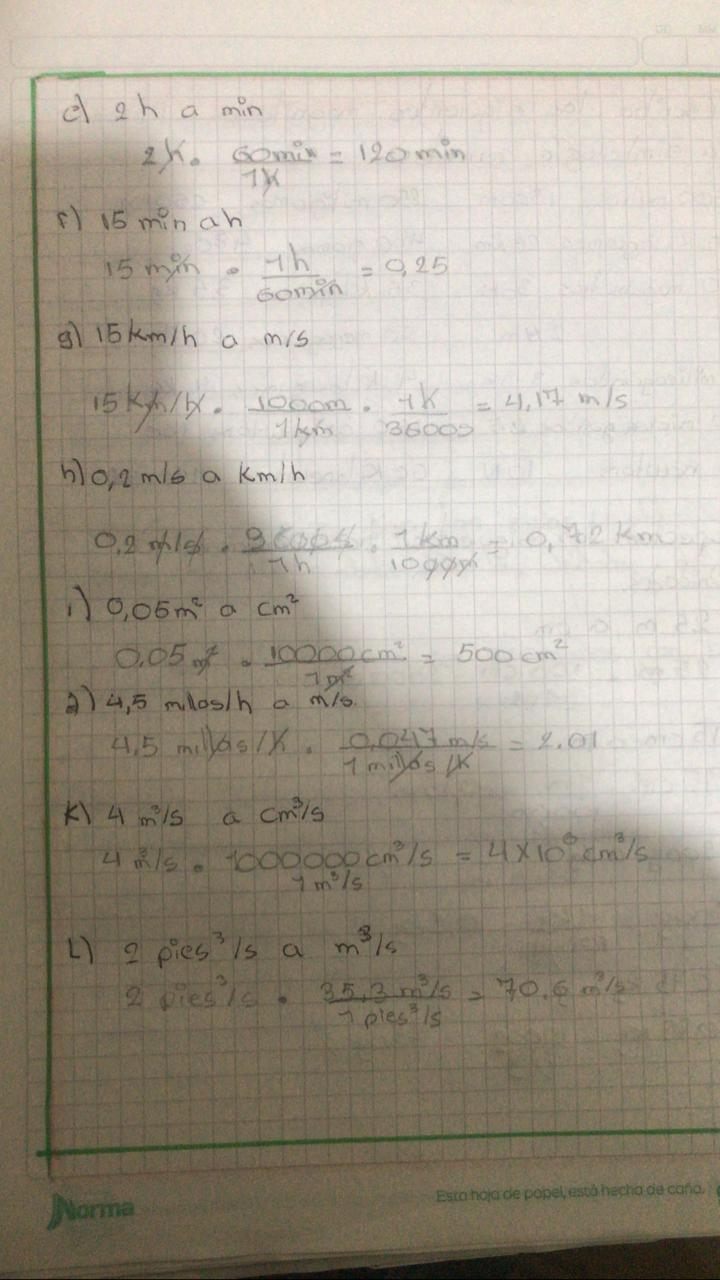 e) 2 h a min
2h . 60min / 1h = 120 min
f) 15 min a h
15 min . 1h / 60min = 0,25
g) 15 km/h a m/s
15 km/h . 1000m / 1km . 1h / 3600s = 4,17 m/s
h) 0,2 m/s a km/h
0,2 m/s . 3600s / 1h . 1km / 1000m = 0,72 km
i) 0,05m² a cm²
0.05 m² . 10000cm² / 1m² = 500 cm²
J) 4,5 millas/h a m/s.
4,5 millas/h . 0,047 m/s / 1 millas/h = 2.01
K) 4 m³/s a cm³/s
4 m³/s . 1000000 cm³/s / 1 m³/s = 4X10⁶ cm³/s
L) 2 pies³/s a m³/s
2 pies³/s . 35,3 m³/s / 1 pies³/s = 70.6 m³/s
Norma
Esta hoja de papel, está hecha de caña.